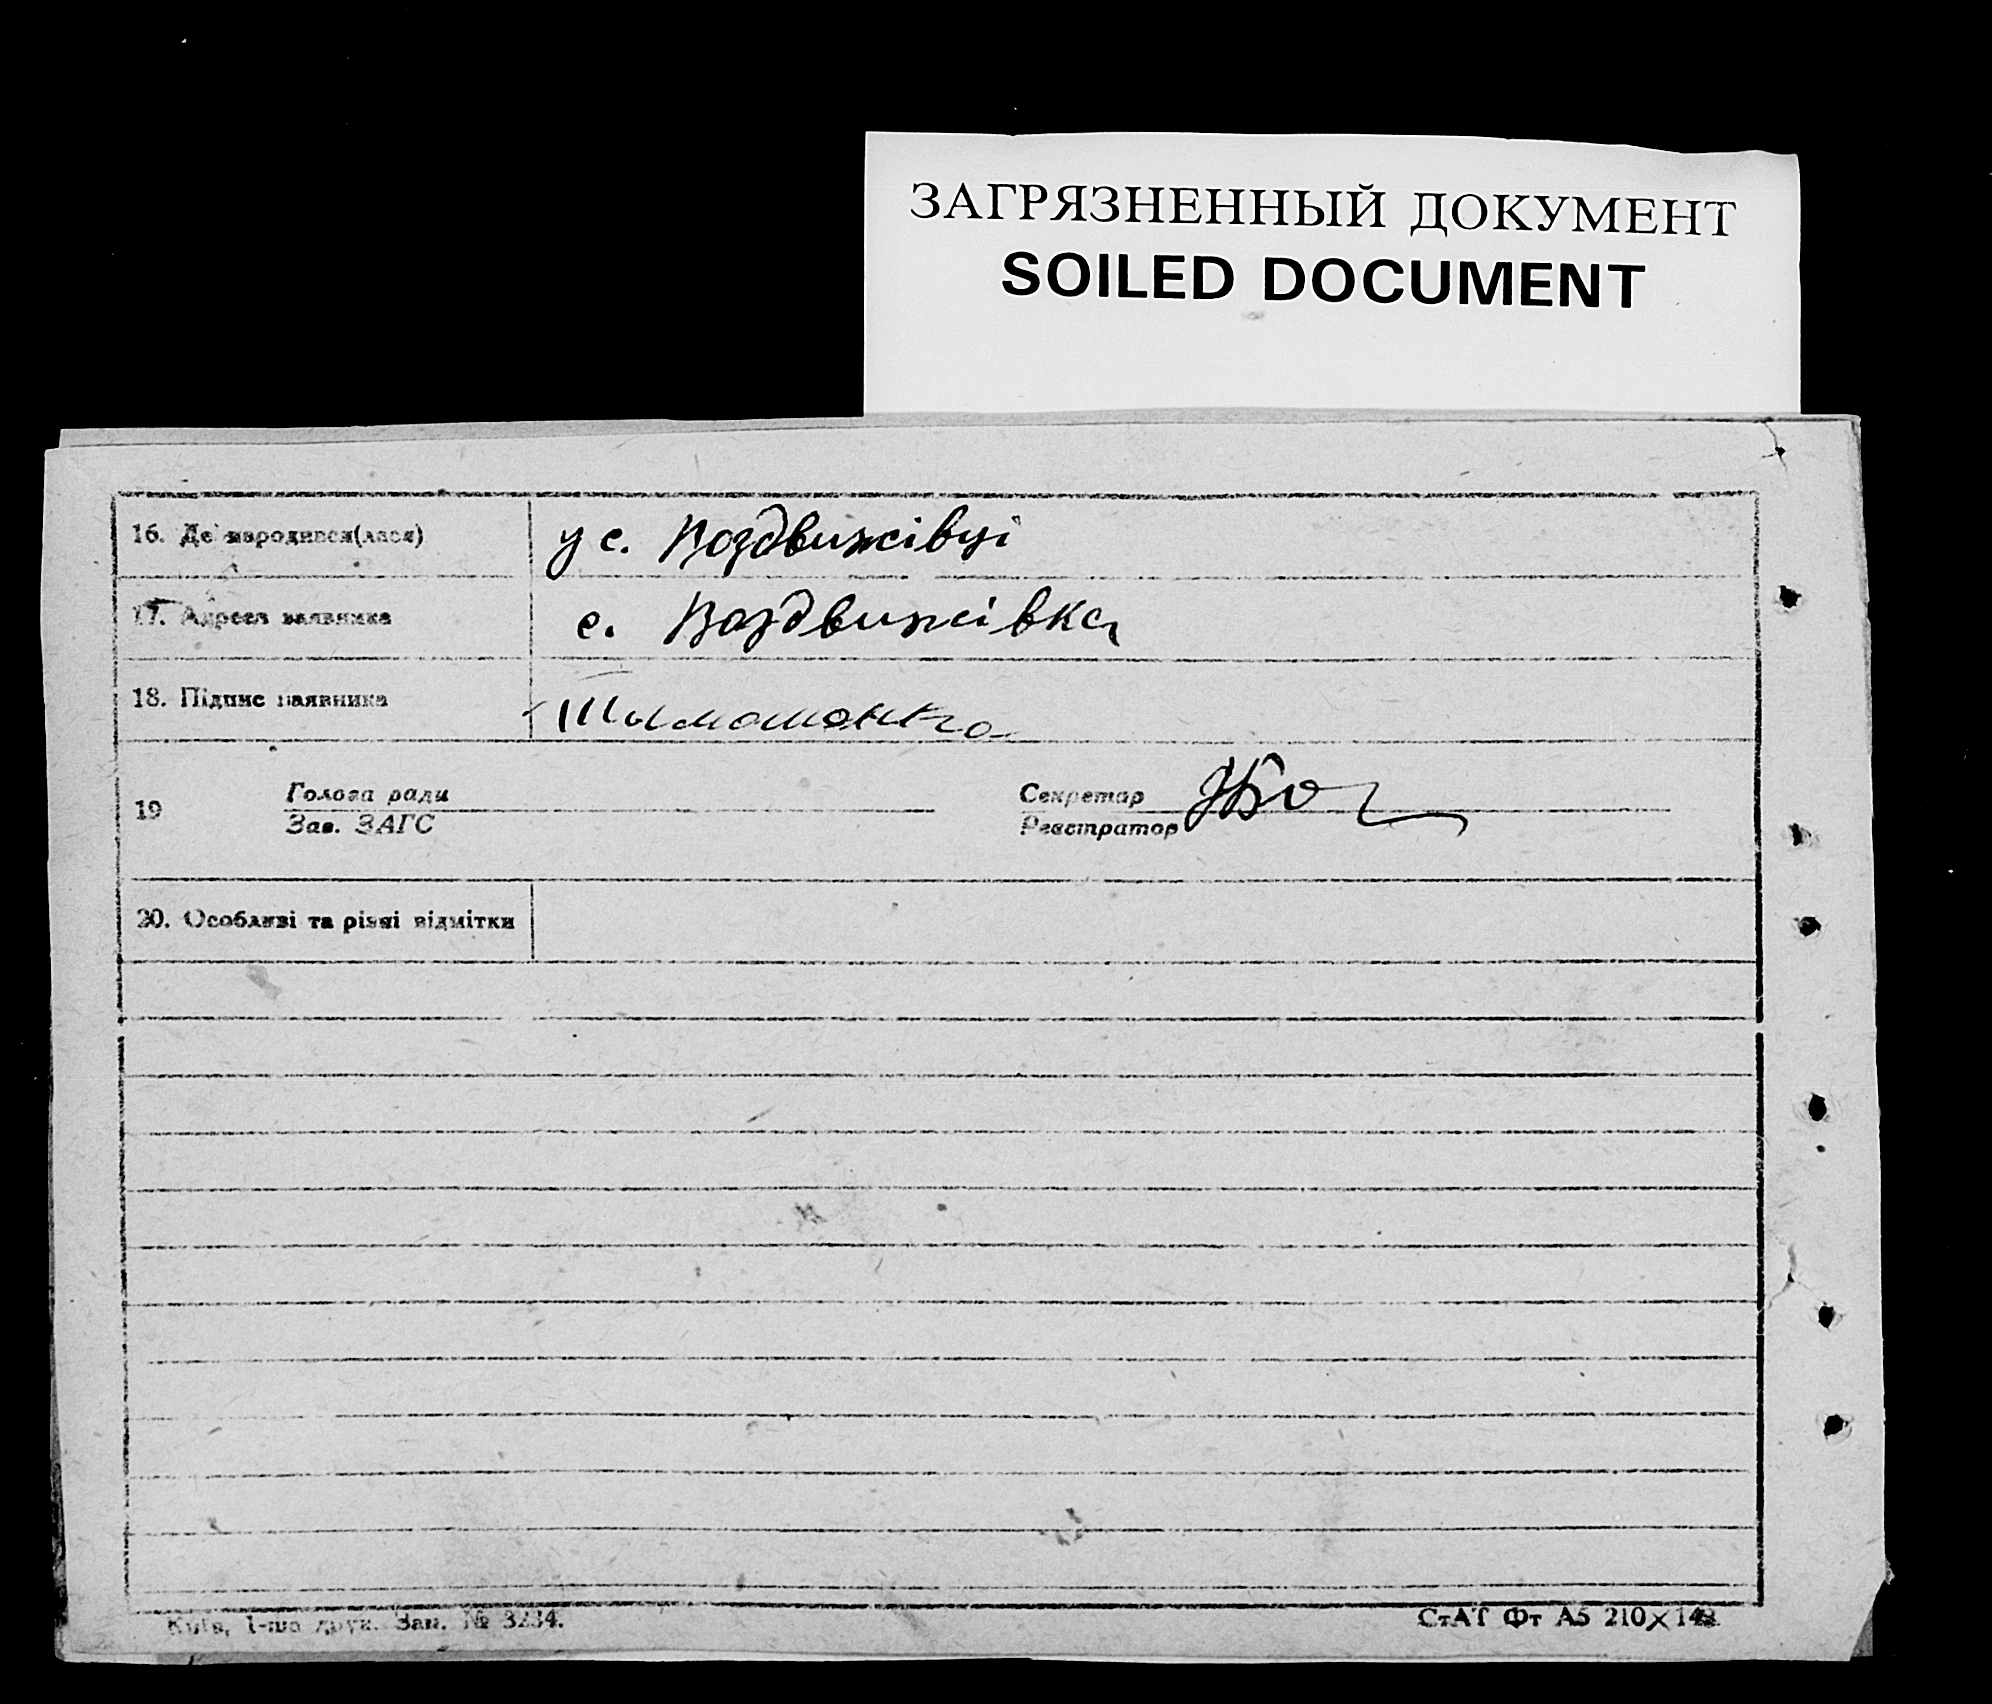 ЗАГРЯЗНЕННЫЙ ДОКУМЕНТ
SOILED DOCUMENT
16. Де народився(лася) у с. Воздвижівці
17. Адреса заявника с. Воздвижівка
18. Підпис заявника
19 Голова ради Секретар
Зав. ЗАГС Реєстратор
20. Особливі та різні відмітки
Київ, 1-ша друк. Зам. № 3234.
СтАТ Фт А5 210×148